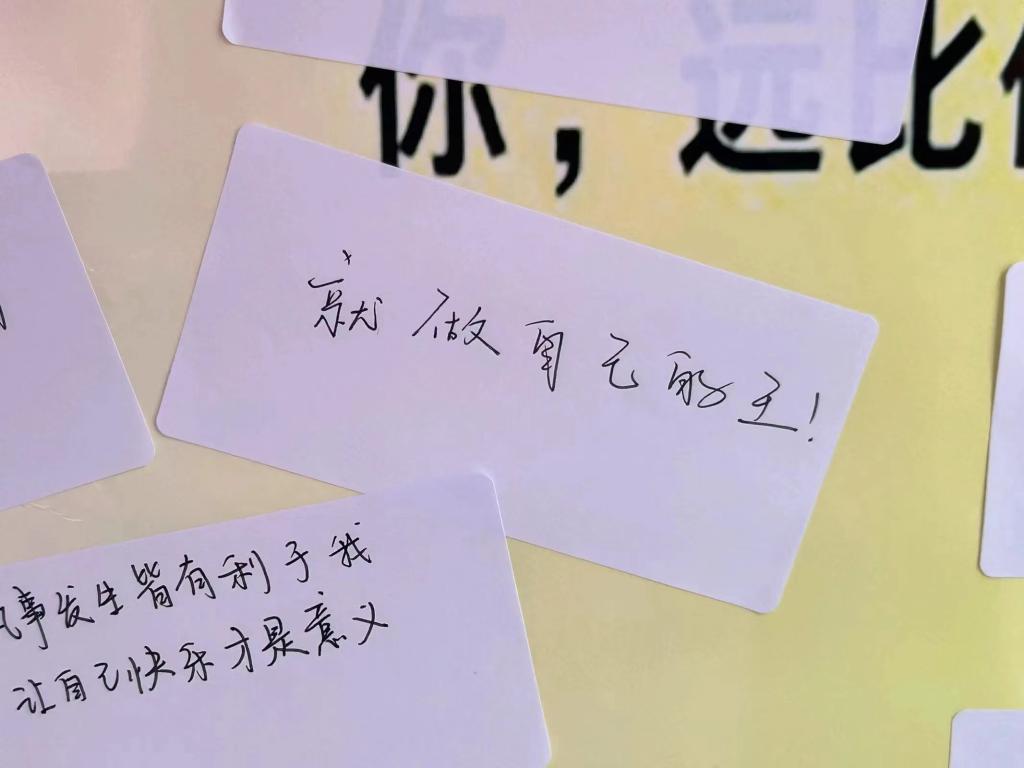 你，远比
就做自己的主！
凡事发生皆有利于我
让自己快乐才是意义